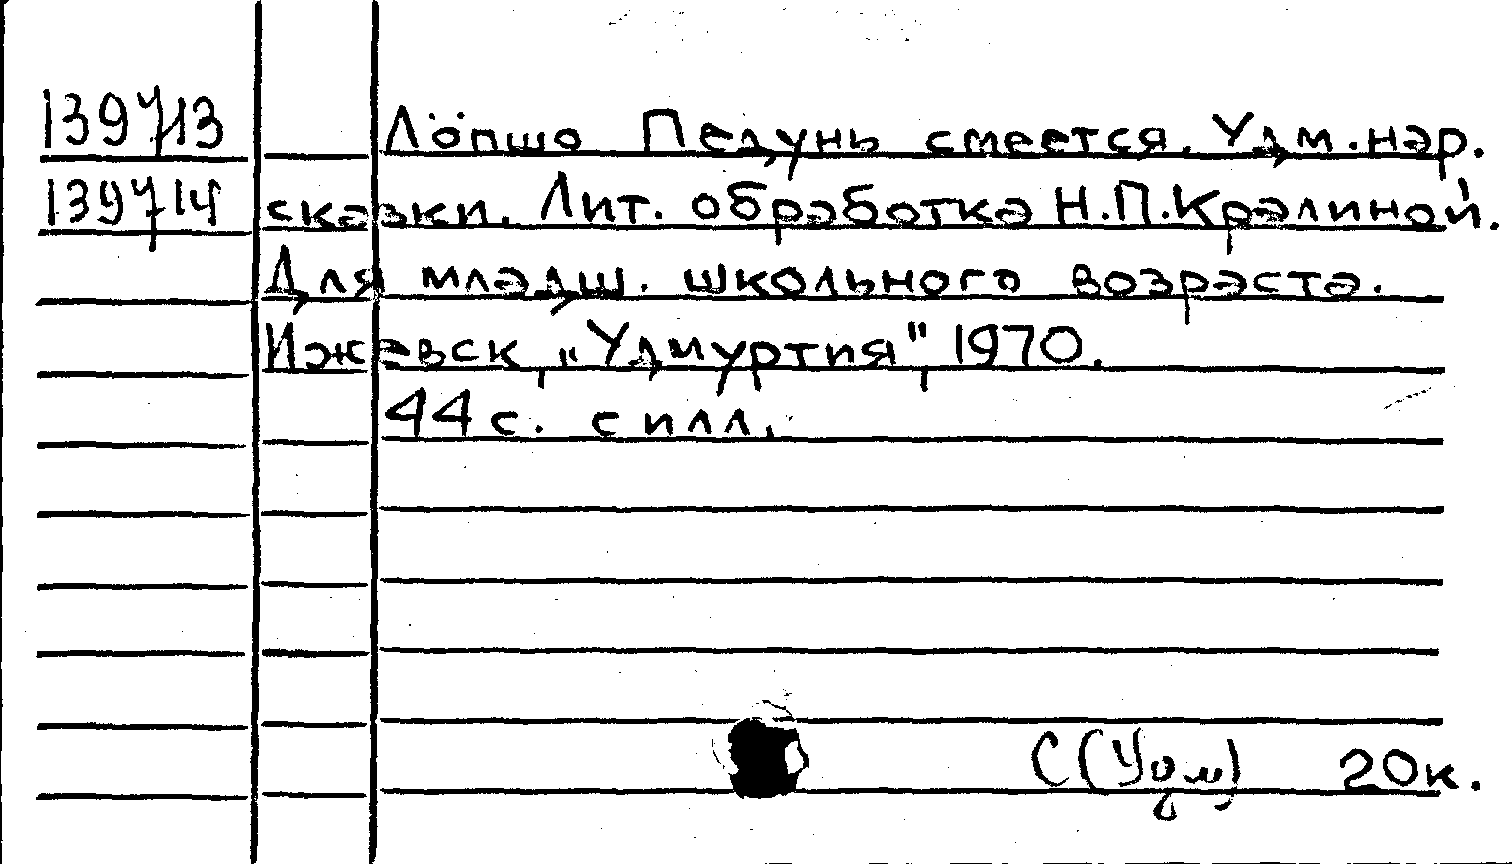 139713 Лöпшо Педунь смеется. Удм. нар.
139714 сказки. Лит. обработка Н.П.Кралиной.
Для младш. школьного возраста.
Ижевск, "Удмуртия", 1970.
44 с. с илл.
С(Удм) 20к.